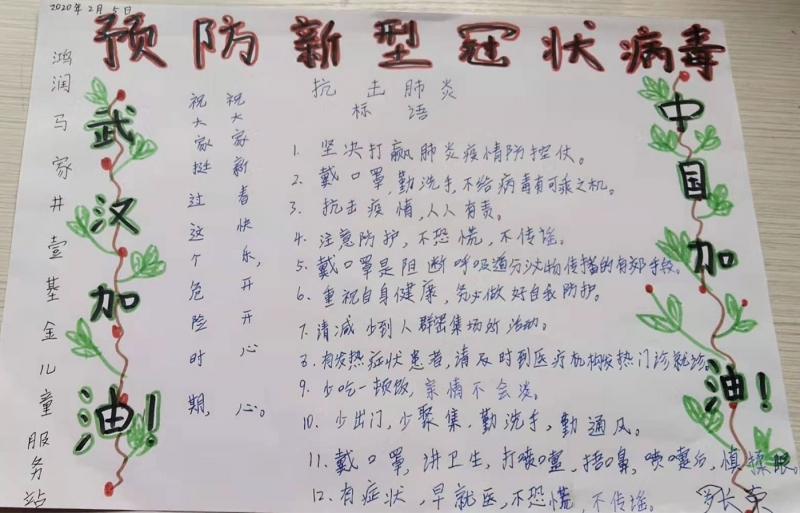 2020年2月5日
预防新型冠状病毒
鸿润马家井壹基金儿童服务站
武汉加油!
祝大家新春快乐,开开心心。
祝大家挺过这个危险时期,
抗击肺炎
标语
1. 坚决打赢肺炎疫情防控仗。
2. 戴口罩,勤洗手,不给病毒有可乘之机。
3. 抗击疫情,人人有责。
4. 注意防护,不恐慌,不传谣。
5. 戴口罩是阻断呼吸道分泌物传播的有效手段。
6. 重视自身健康,务必做好自我防护。
7. 请减少到人群密集场所活动。
8. 有发热症状患者,请及时到医疗机构发热门诊就诊。
9. 少吃一顿饭,亲情不会淡。
10. 少出门,少聚集,勤洗手,勤通风。
11. 戴口罩,讲卫生,打喷嚏,捂口鼻,喷嚏后,慎揉眼。
12. 有症状,早就医,不恐慌,不传谣。
中国加油!